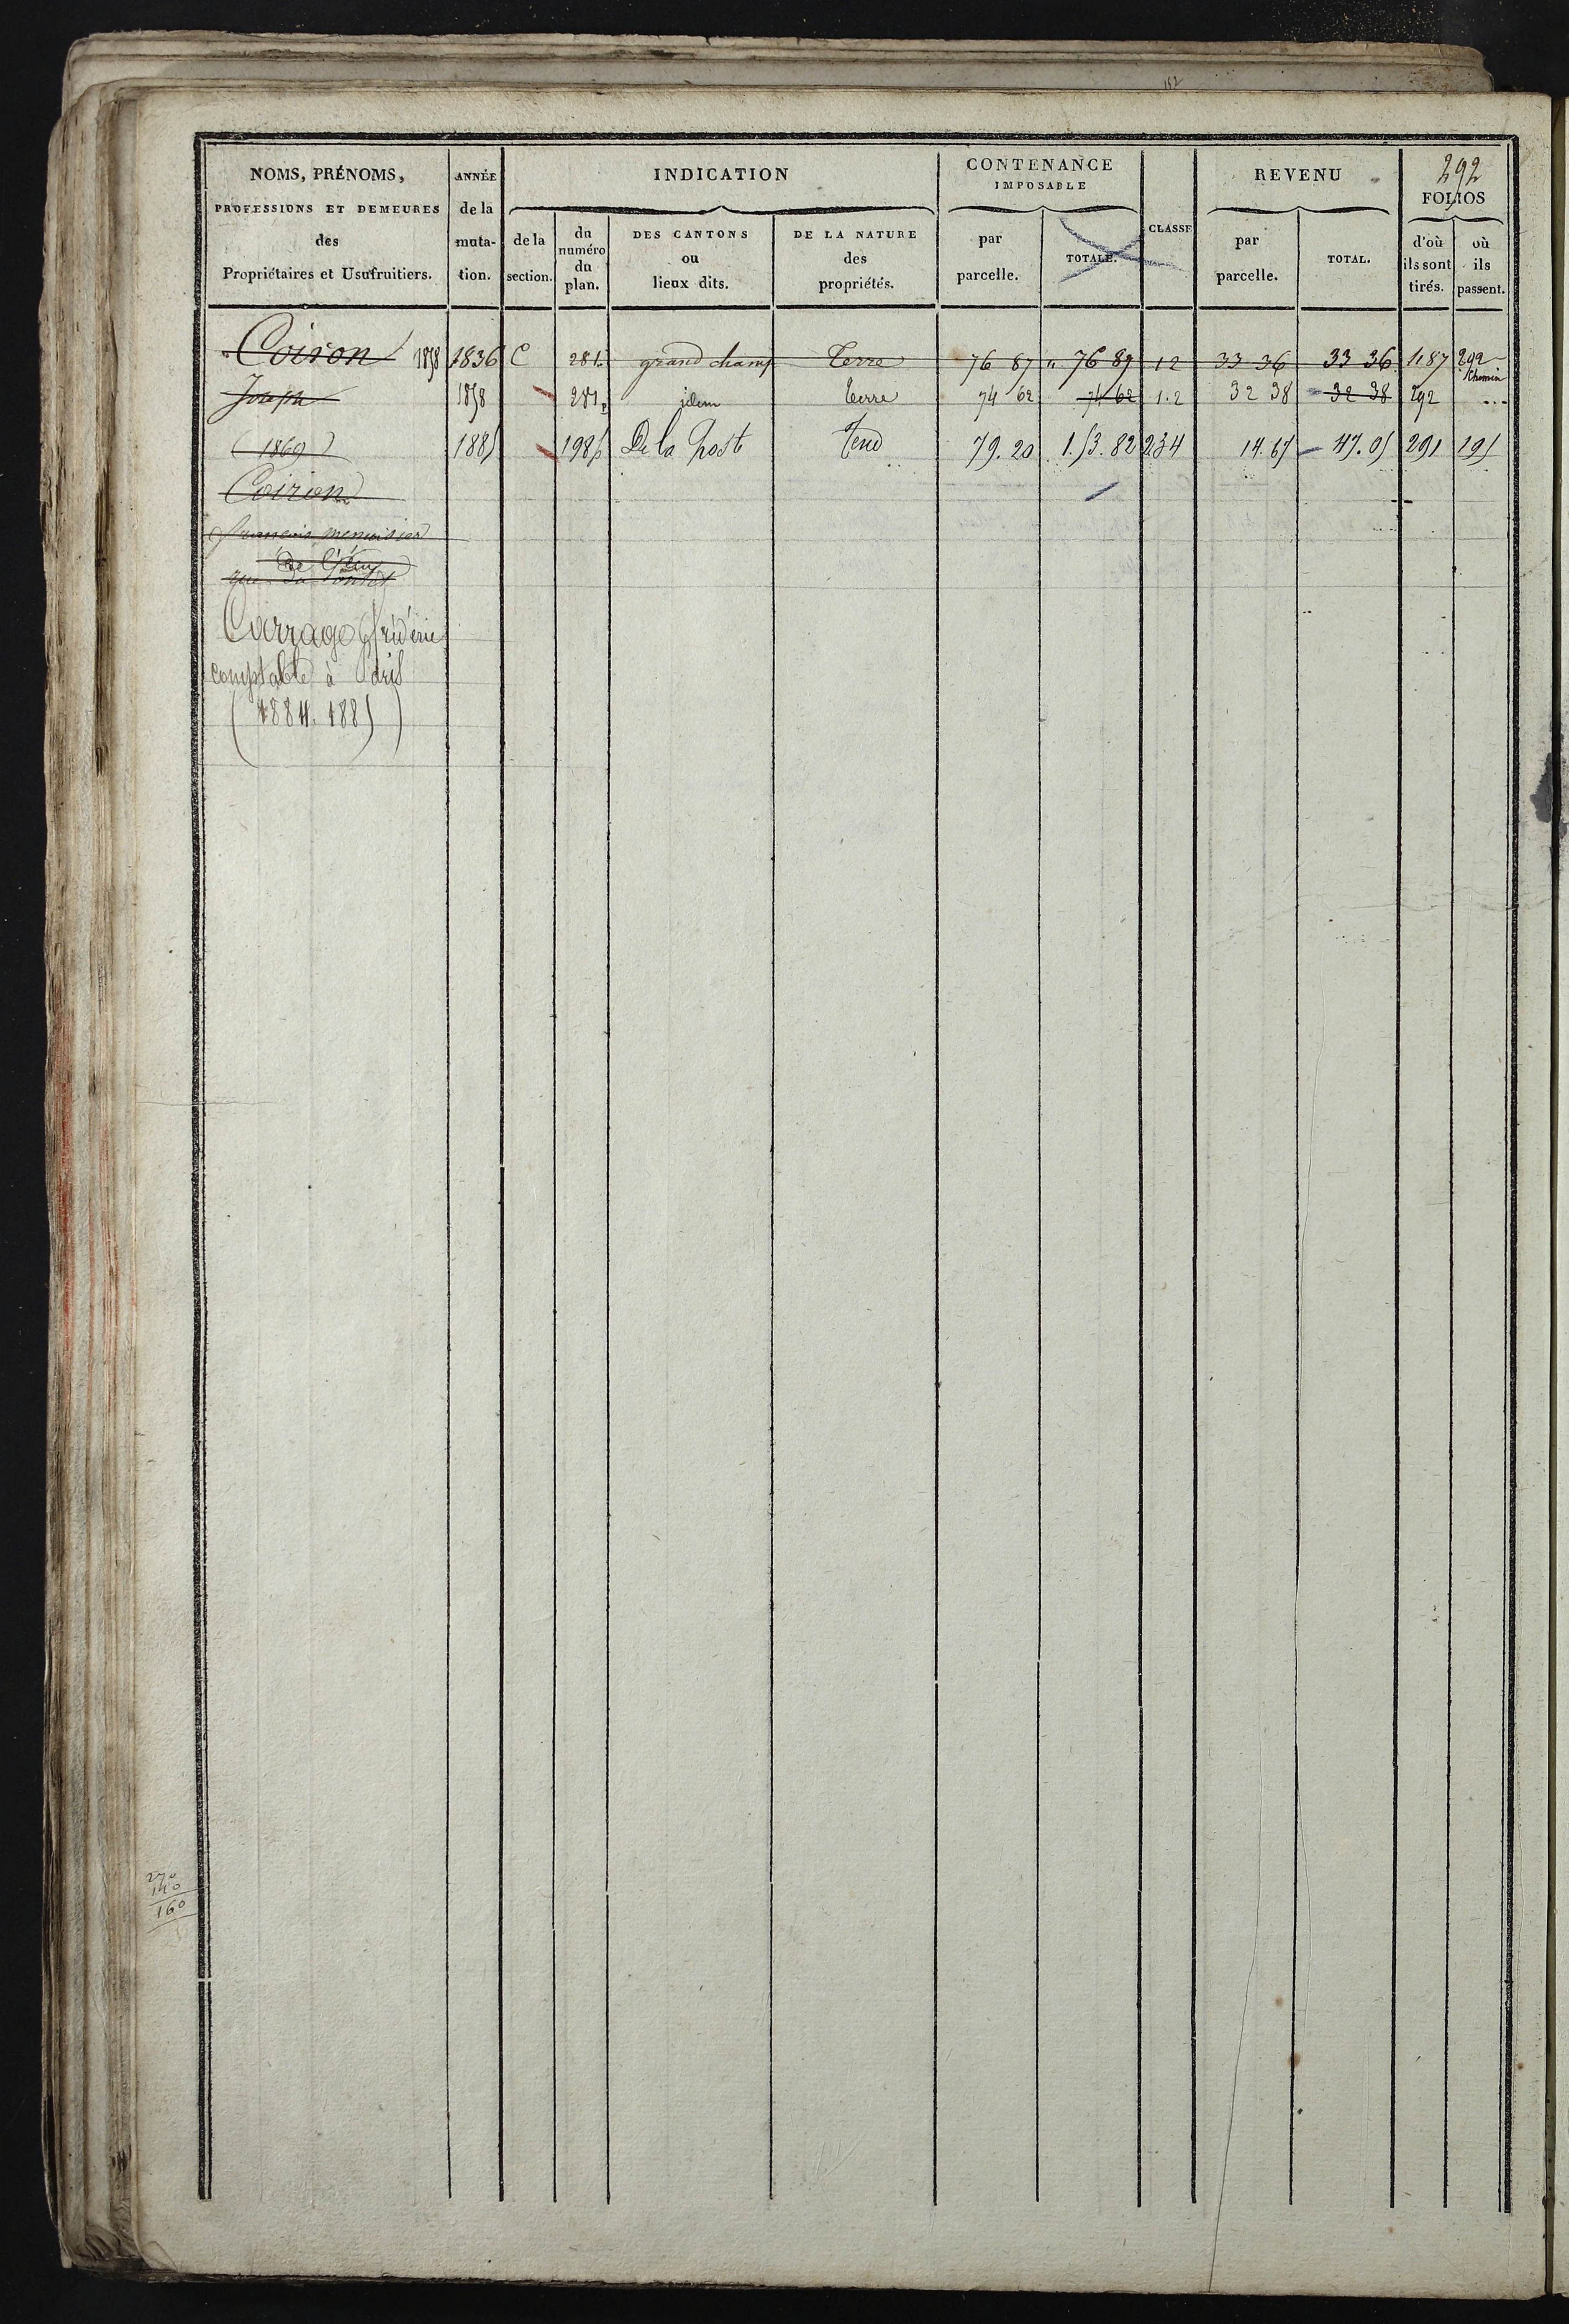 152
NOMS, PRÉNOMS,
PROFESSIONS ET DEMEURES
des
Propriétaires et Usufruitiers.
ANNÉE
de la
muta-
tion.
INDICATION
de la
section.
du
numéro
du
plan.
DES CANTONS
ou
lieux dits.
DE LA NATURE
des
propriétés.
CONTENANCE
IMPOSABLE
par
parcelle.
TOTALE.
CLASSE
REVENU
par
parcelle.
TOTAL.
292
FOLIOS
d'où
ils sont
tirés.
où
ils
passent.
Coiron 1858 1836 C 281. grand champ Terre 76 87 " 76 87 12 33 36 33 36 1187 292
Chemin
Joseph 1858 281p idem terre 74 62 74 62 1.2 32 38 32 38 292
(1869) 1885 198p De la Post 79.20 1.53.82 234 14.67 47.05 291 195
Coirion
françois menuisier
rue du
Carrago
comptable à
(1884. 1885)
270
160